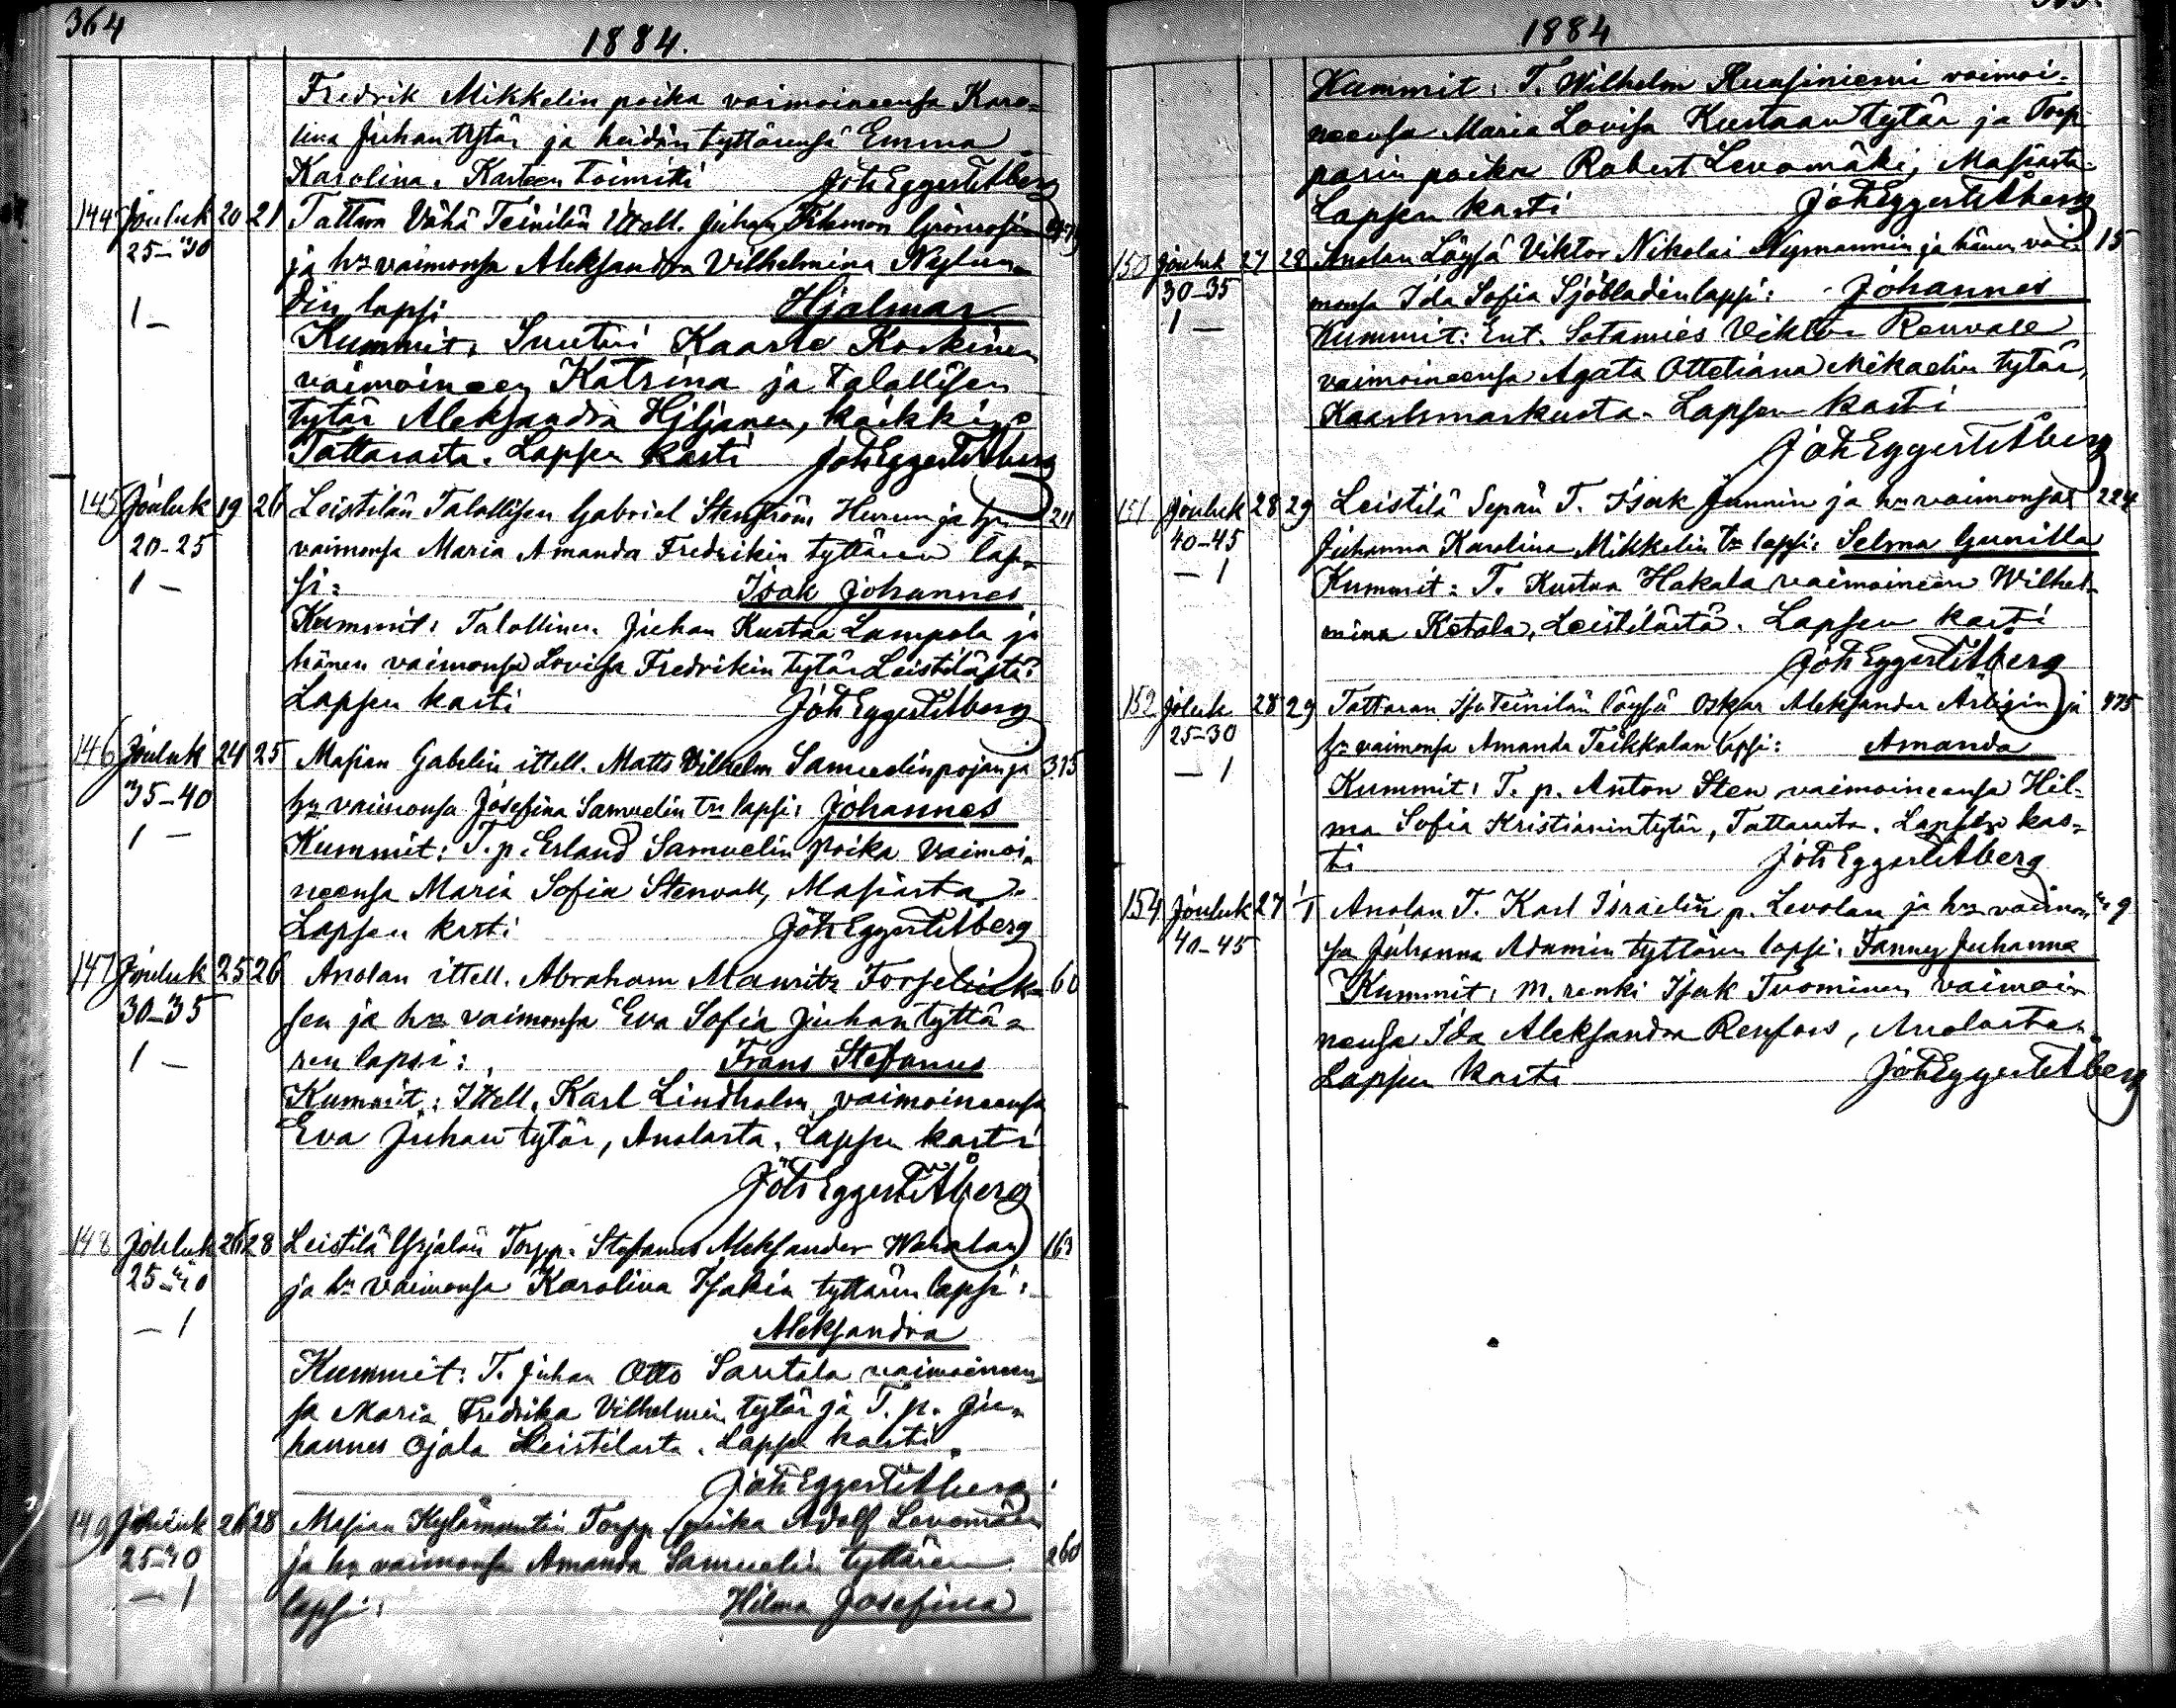 364
1884.
Fredrik Mikkelin poika vaimoineensa Karo-
lina Juhantytär ja heidän tyttärensä Emma
Karolina. Kasteen toimitti Joh Eggert Åberg
144 Jouluk 20 21 Tattara Vähä Teinilän Itsell. Juhan Filemon Grönroosin
25-30 ja hn vaimonsa Aleksandra Vilhelmina Nylun-
1 - din lapsi Hjalmar
Kummit: Suutari Kaarle Koskinen
vaimoineen Katrina ja talollisen
tytär Aleksandra Hiljanen, kaikki
Tattarasta. Lapsen kasti Joh Eggert Åberg
145 Jouluk 19 26 Leistilän Talollisen Gabriel Stenström Hurun ja hn 211
20-25 vaimonsa Maria Amanda Fredrikin tyttären lap-
1 - si: Isak Johannes
Kummit: Talollinen Juhan Kustaa Lampola ja
hänen vaimonsa Lovisa Fredrikin tytär Leistilästä.
Lapsen kasti Joh Eggert Åberg
146 Jouluk 24 25 Masian Gabelin ittell. Matts Vilhelm Samuelinpojan ja 315
35-40 hn vaimonsa Josefina Samuelin tr lapsi: Johannes
1 - Kummit: T. p. Erland Samuelin poika vaimoi-
neensa Maria Sofia Stenvall, Masiasta.
Lapsen kasti Joh Eggert Åberg
147 Jouluk 25 26 Anolan ittell. Abraham Mauritz Forselink- 60
30-35 sen ja hn vaimonsa Eva Sofia Juhantyttä-
1 - ren lapsi: Frans Stefanus
Kummit: Ittell. Karl Lindholm vaimoineensa
Eva Juhan tytär, Anolasta. Lapsen kasti
Joh Eggert Åberg
148 Jouluk 26 28 Leistilä Yrjälän Torpp. Stefanus Aleksander Wahalan 163
25-30 ja hn vaimonsa Karolina Isakin tyttären lapsi:
- 1 Aleksandra
Kummit: T. Juhan Otto Santala vaimoineen-
sa Maria Fredrika Vilhelmin tytär ja T. p. Ju-
hannes Ojala Leistilasta. Lapsen kasti
Joh Eggert Åberg
149 Jouluk 26 28 Masian Kylänmuntin Torpp. poika Adolf Levomäen
25-30 ja hn vaimonsa Amanda Samuelin tyttären 260
- 1 lapsi: Hilma Josefina
1884
Kummit: T. Wilhelm Ruusiniemi vaimoi-
neensa Maria Lovisa Kustaan tytär ja Torp-
parin poika Robert Levomäki, Masiasta.
Lapsen kasti Joh Eggert Åberg
150 Jouluk 27 28 Anolan Löysä Viktor Nikolai Nymannin ja hänen vai- 15
30-35 monsa Ida Sofia Sjöbladin lapsi: Johannes
1 - Kummit: Ent. Sotamies Viktor Renvall
vaimoineensa Agata Ottetiana Mikaelin tytär,
Kaasmarkusta. Lapsen kasti
Joh Eggert Åberg
151 Jouluk 28 29 Leistilä Sepän T. Isak Junnin ja hn vaimonsa 224
40-45 Juhanna Karolina Mikkelin tr lapsi: Selma Gunilla
- 1 Kummit: T. Kustaa Hakala vaimoineen Wilhel-
mina Ketola, Leistilästä. Lapsen kasti
Joh Eggert Åberg
152 Joluk 28 29 Tattaran Iso Teinilän löysä Oskar Aleksander Arligin ja 475
25-30 hn vaimonsa Amanda Teikkalan lapsi: Amanda
- 1 Kummit: T. p. Anton Sten vaimoineensa Hil-
ma Sofia Kristianintytär, Tattarasta. Lapsen kas-
ti Joh Eggert Åberg
154 Jouluk 27 1/1 Anolan T. Karl Israelin p. Levolan ja hn vaimon 9
40-45 sa Juhanna Adamin tyttären lapsi: Fanny Juhanna
Kummit: m. renki Isak Tuominen vaimoi-
neensa Ida Aleksandra Renfors, Anolasta.
Lapsen kasti Joh Eggert Åberg